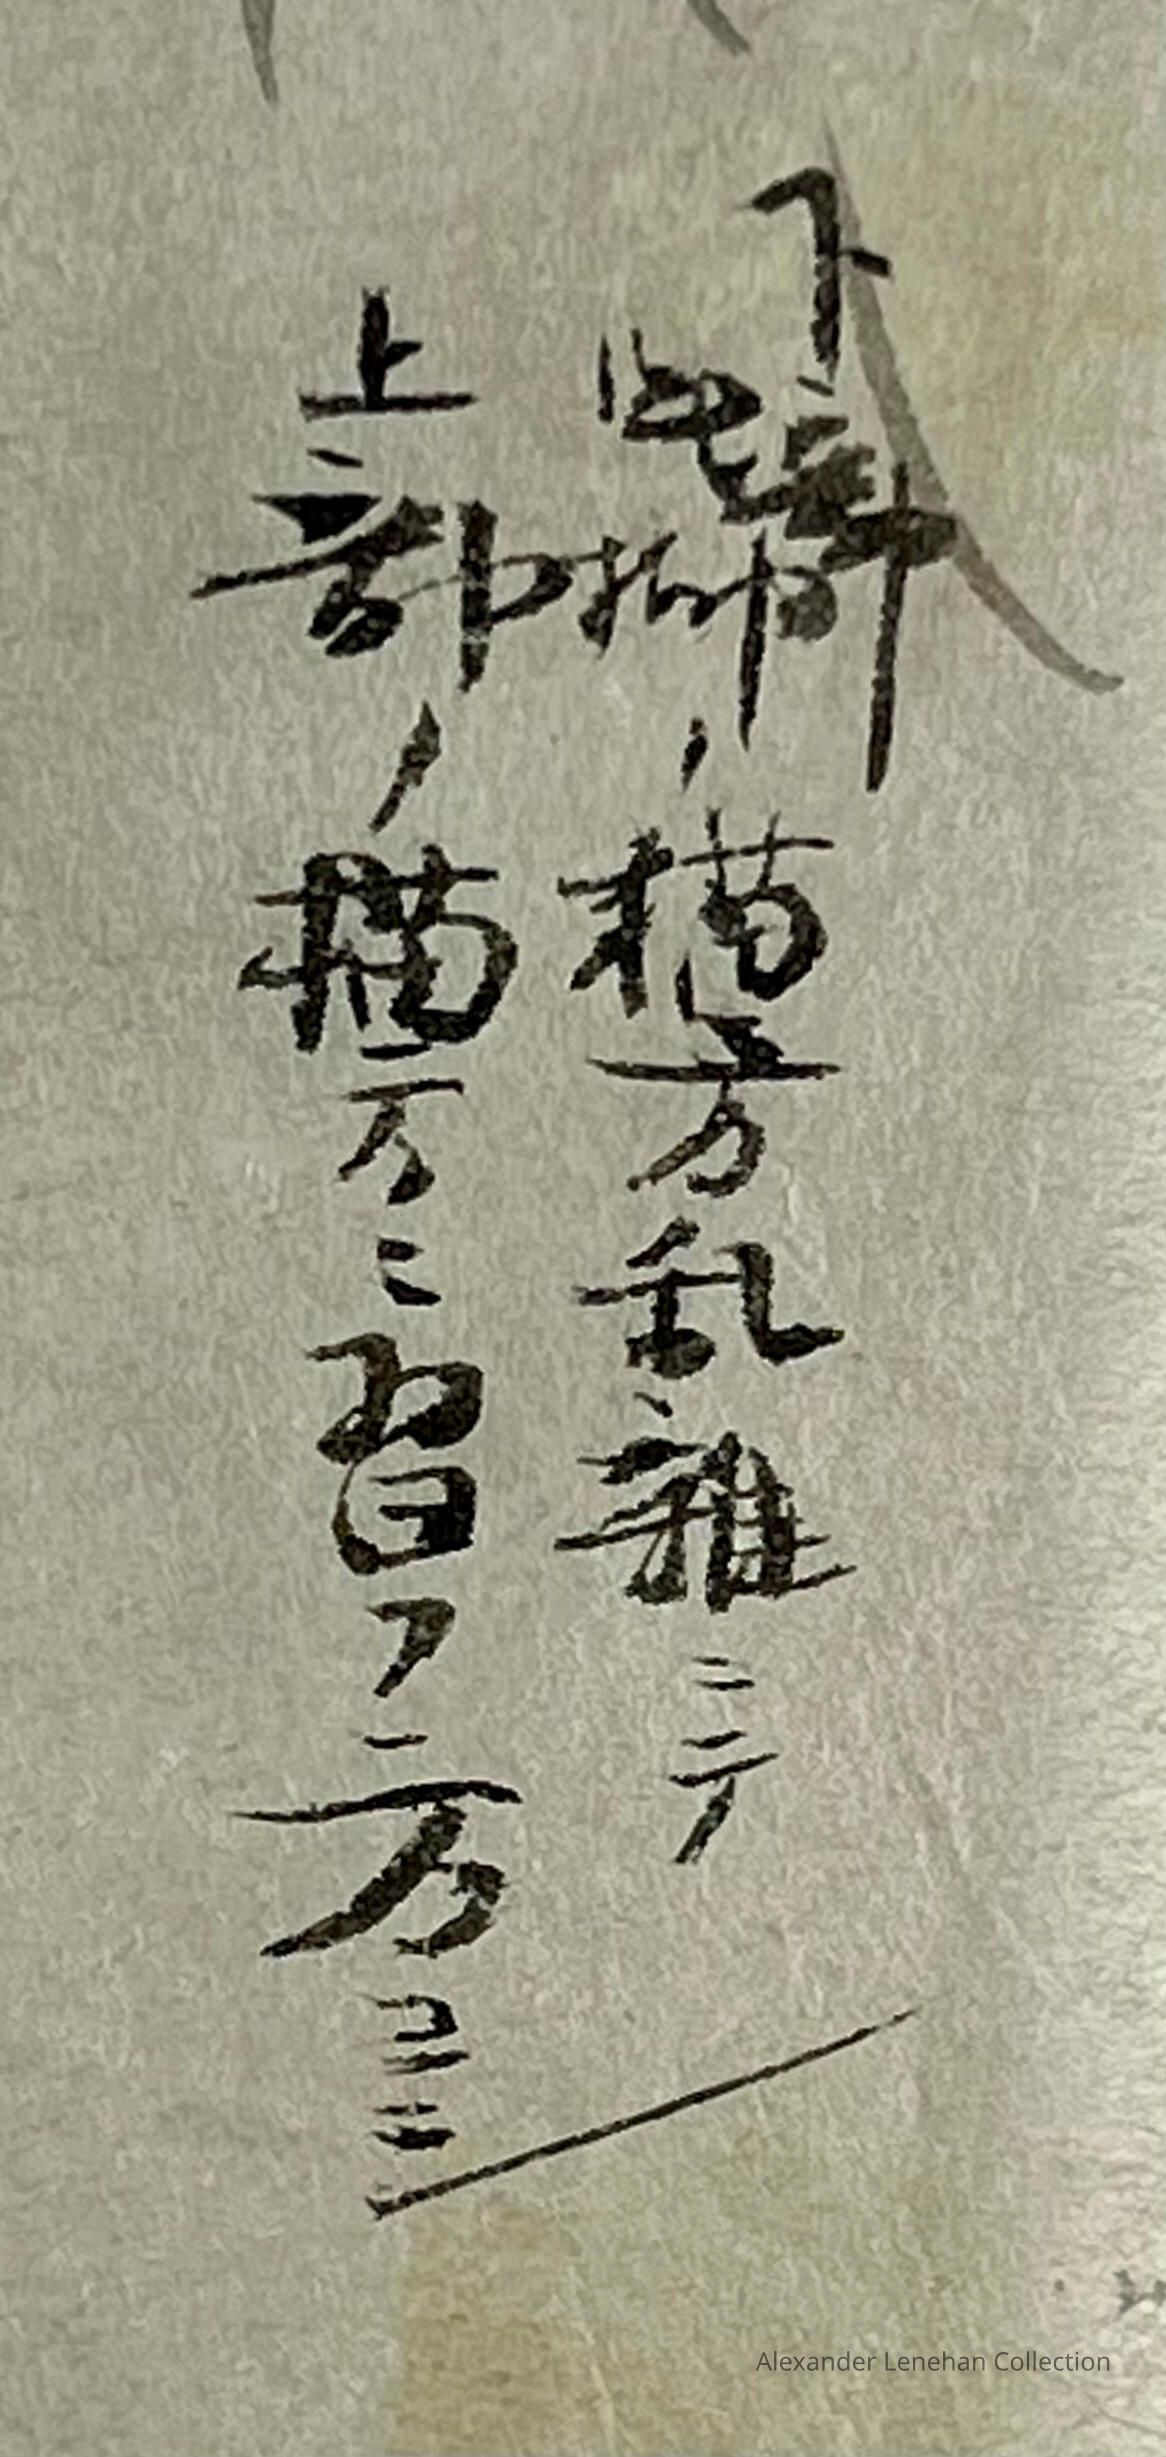 下 ノ描方乱雑ニテ
上部ノ描方ニ習フ方ヨシ
Alexander Lenehan Collection